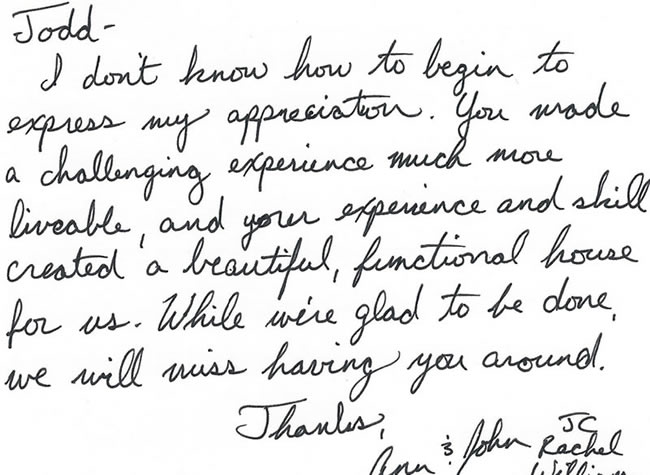 Todd-
I don't know how to begin to
express my appreciation. You made
a challenging experience much more
liveable, and your experience and skill
created a beautiful, functional house
for us. While we're glad to be done,
we will miss having you around.
Thanks,
JC
Ann & John Rachel
William